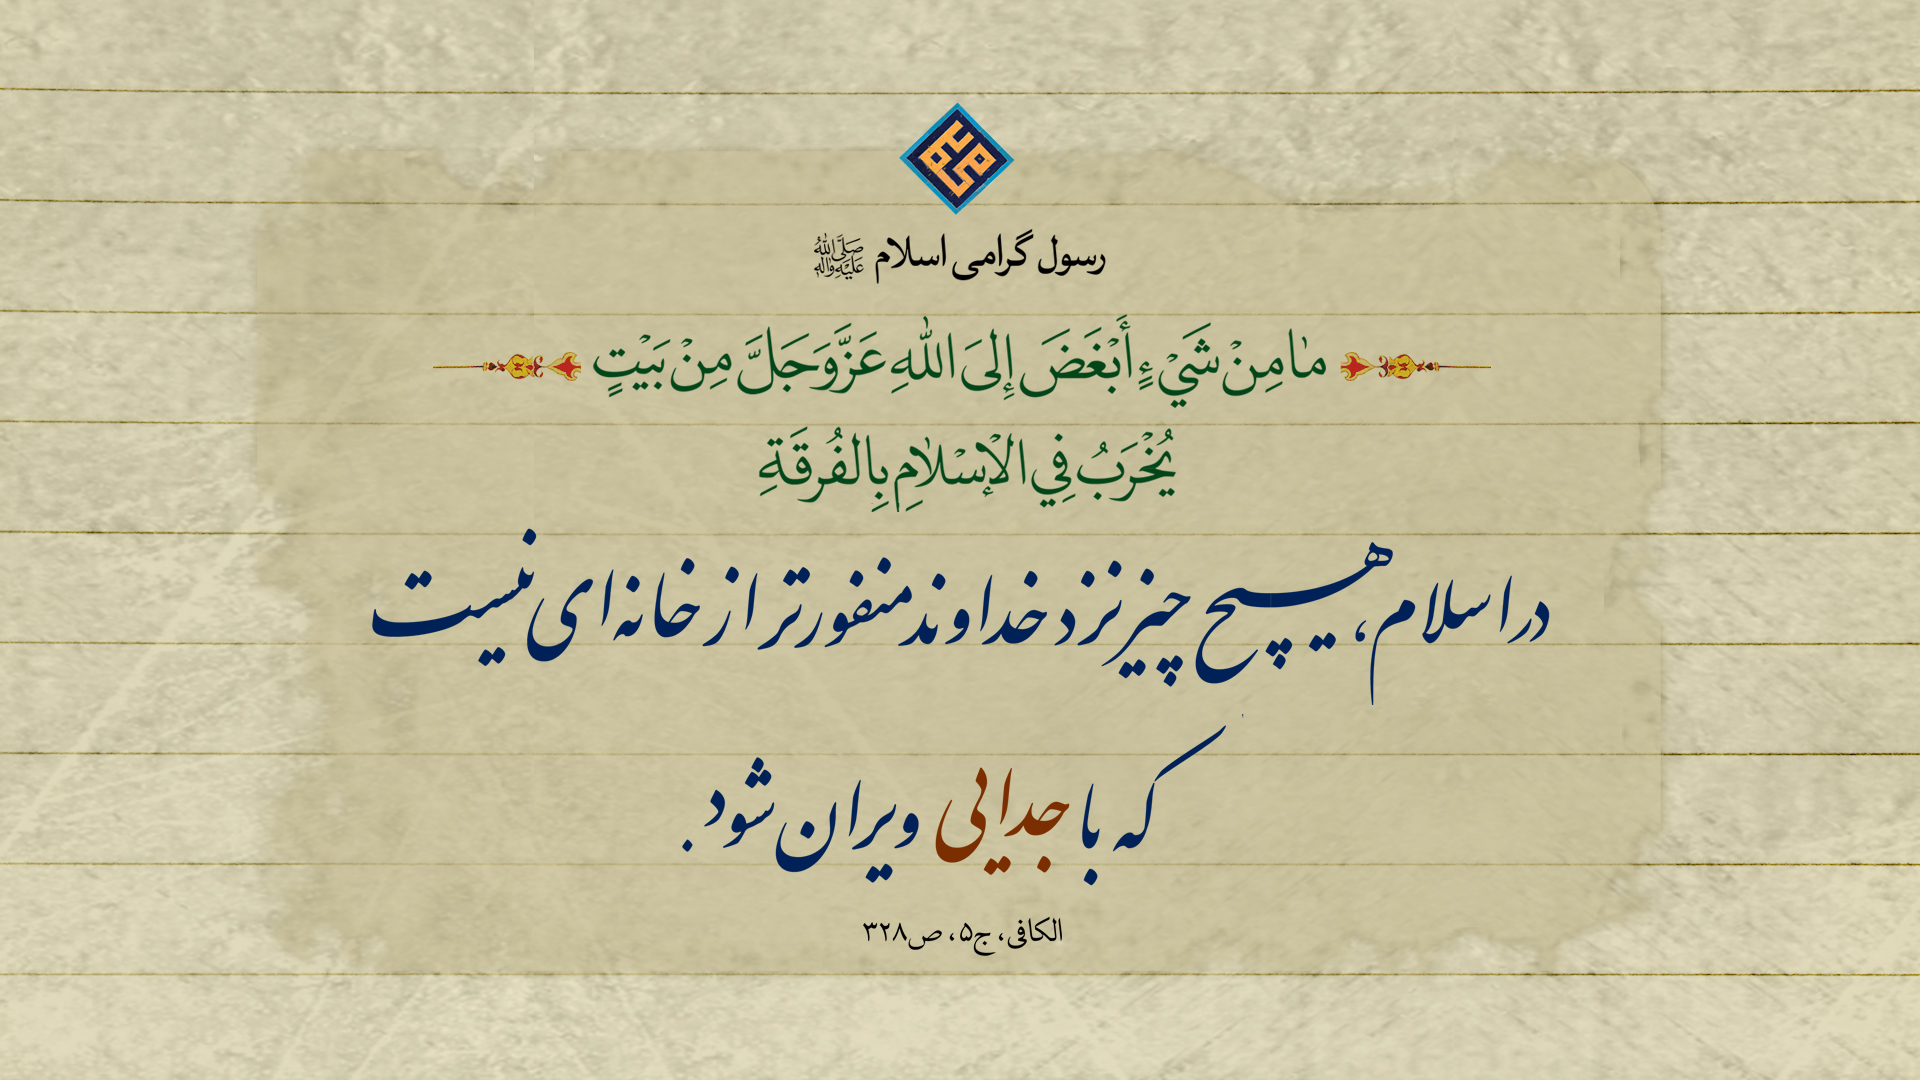 رسول گرامی اسلام صَلَّى اللهُ عَلَيْهِ وَآلِهِ
مٰا مِنْ شَيْءٍ أَبْغَضَ إِلىَ اللهِ عَزَّوَجَلَّ مِنْ بَيْتٍ
يُخْرَبُ فِي الْإسْلٰامِ بِالفُرقَةِ
در اسلام، هیچ چیز نزد خداوند منفورتر از خانه‌ای نیست
که با جدایی ویران شود.
الکافی، ج۵، ص۳۲۸